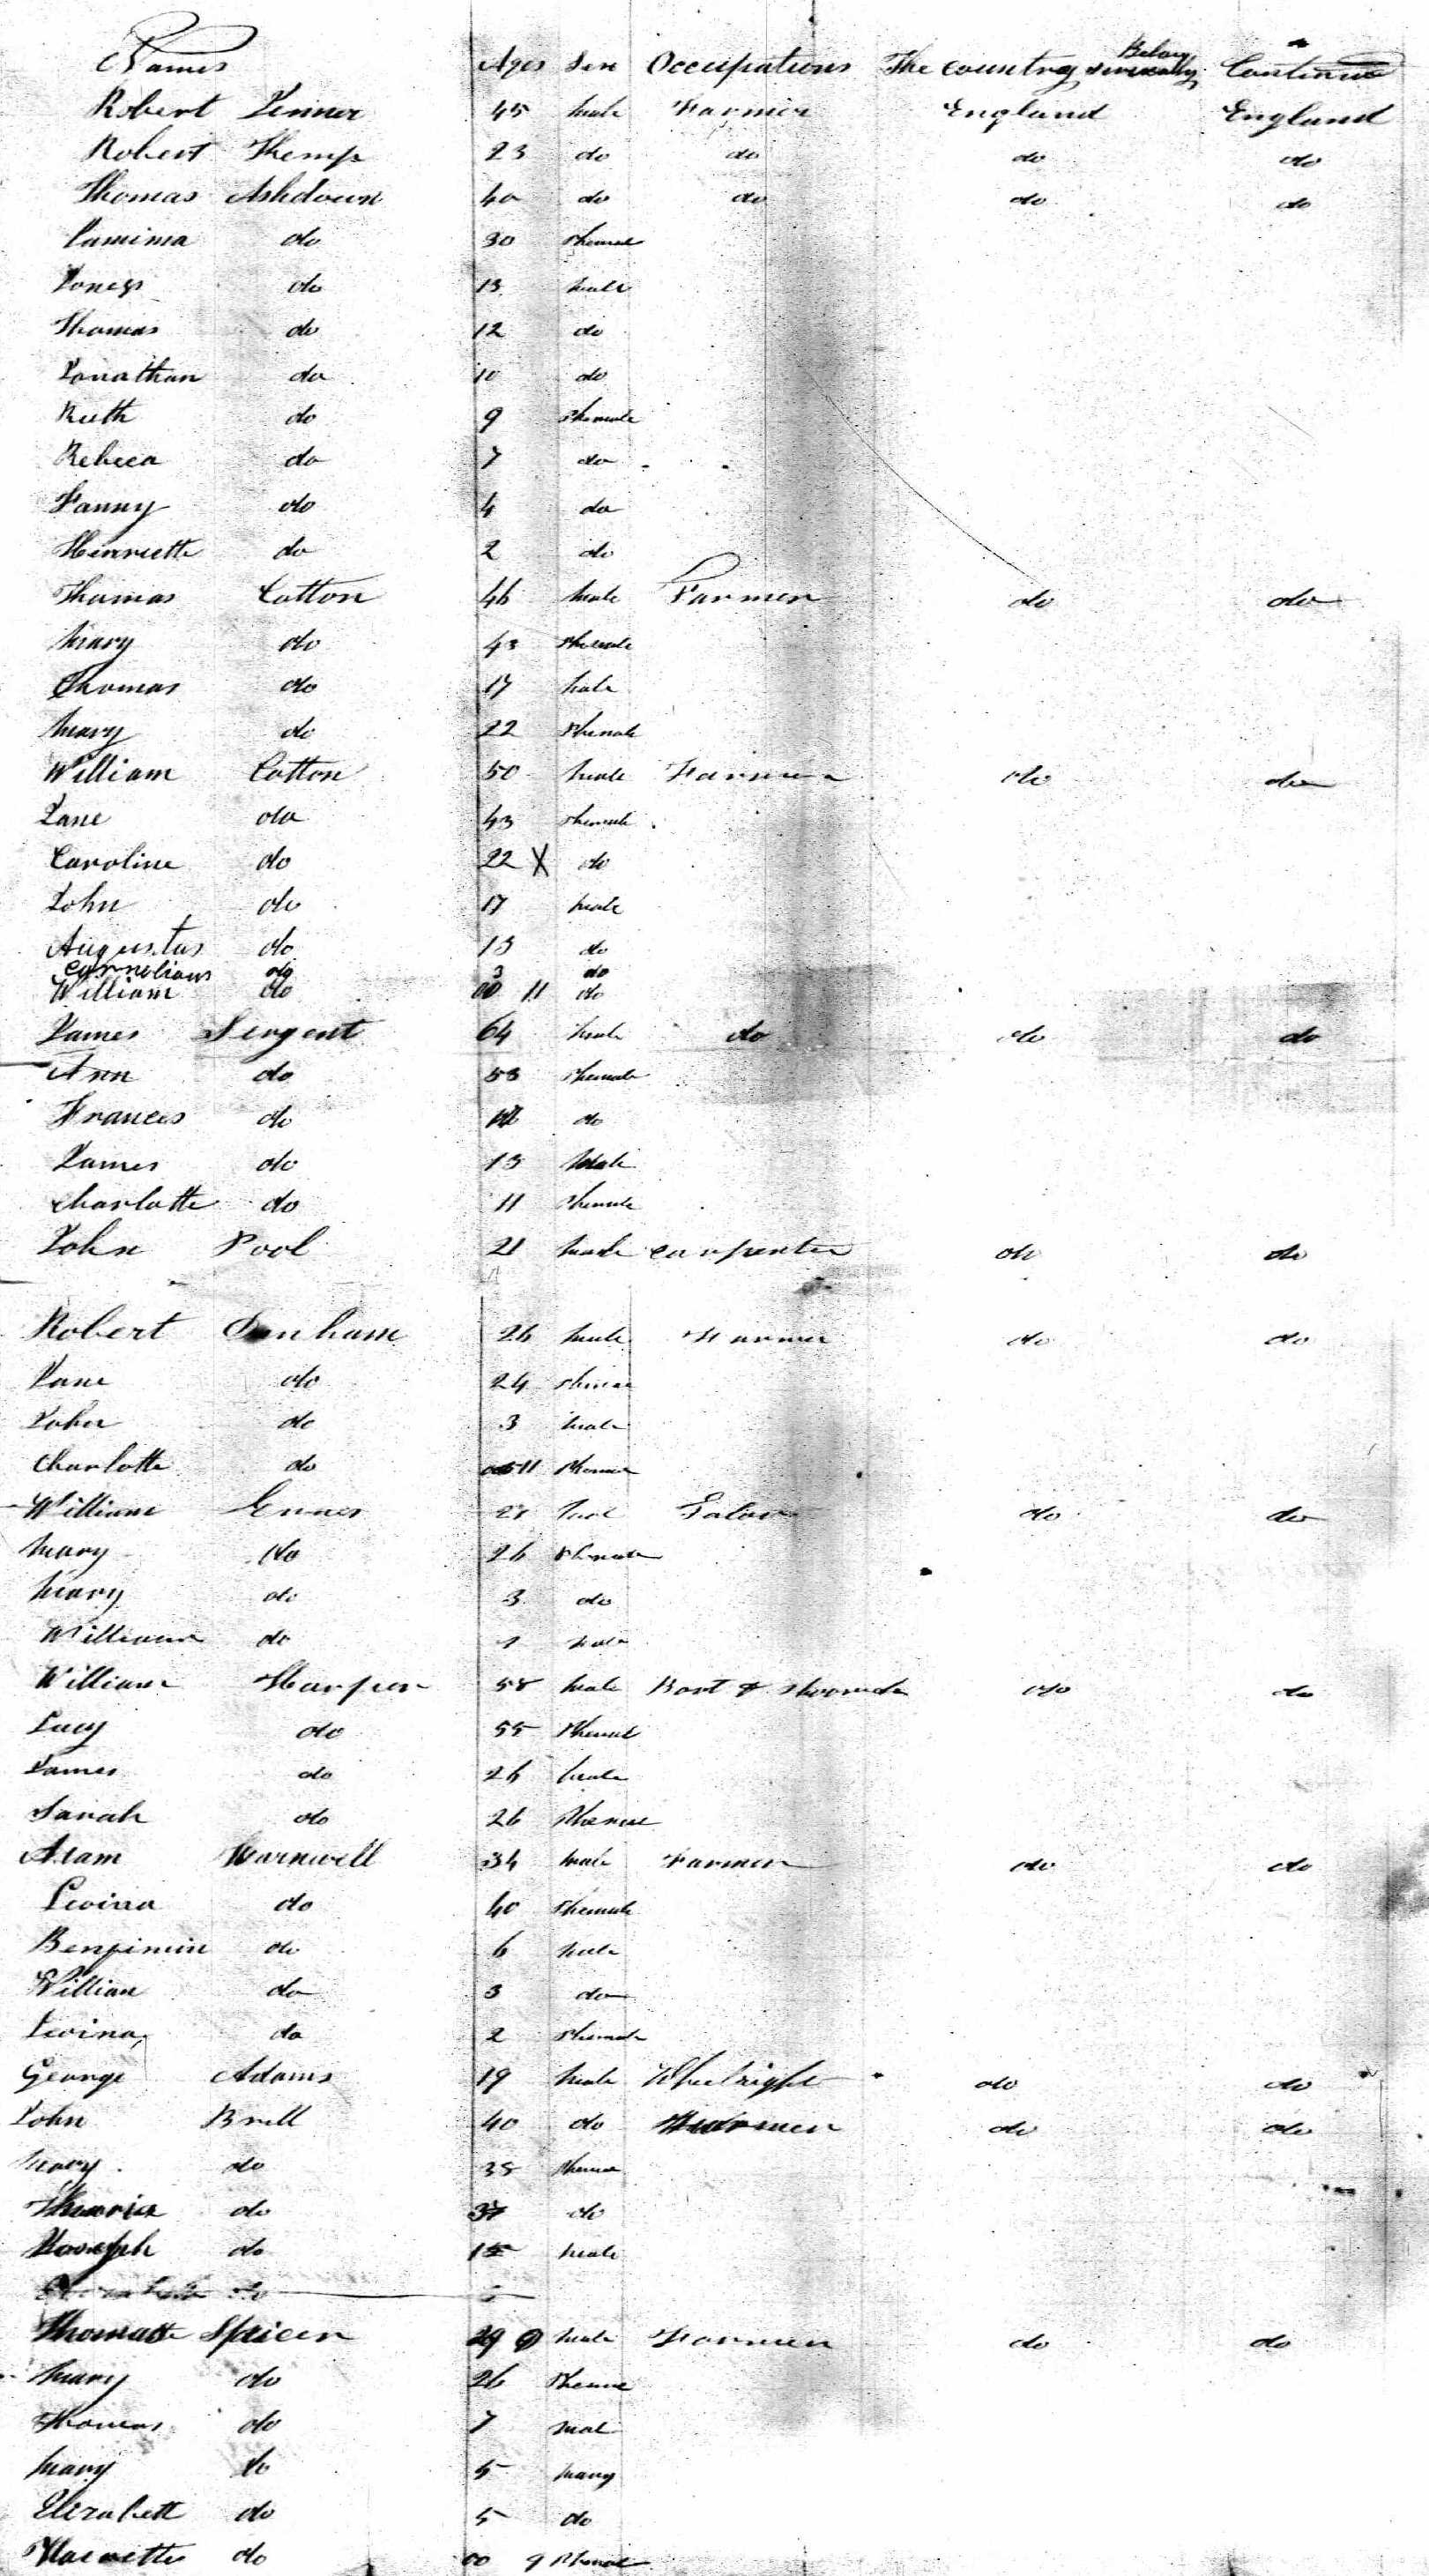 Names Ages Sex Occupations The country Belong severally Continue
Robert Jenner 45 male Farmer England England
Robert Kemp 23 do do do do
Thomas Ashdown 40 do do do do
Jamima do 30 Phemal
do 13 male
Thomas do 12 do
Jonathan do 10 do
Ruth do 9 Phemale
Rebeca do 7 do
Fanny do 4 do
Henrietta do 2 do
Thomas Cotton 46 male Farmer do do
Mary do 43 Phemale
Thomas do 17 male
Mary do 22 Phemale
William Cotton 50 male Farmer do do
Jane do 43 Phemale
Caroline do 22 X do
John do 17 male
Augustus do 13 do
Cornelious do 3 do
William do 00 11 do
James Sergent 64 male do do do
Ann do 53 Phemale
Frances do do
James do 13 Male
Charlotte do 11 Phemale
John Pool 21 male carpenter do do
Robert 26 male Farmer do do
Jane do 24 Phemale
John do 3 male
Charlotte do 11 Phemale
William male do do
Mary do 26 Phemale
Mary do 3 do
William do 1 male
William Harper 58 male Boot & Shoomaker do do
Lucy do 55 Phemal
James do 26 male
Sarah do 26 Phemal
Adam Warnwell 34 male Farmer do do
Levina do 40 Phemale
Benjimin do 6 male
Willian do 3 do
Levina do 2 Phemale
George Adams 19 male Whelright do do
John Brell 40 do do do
Mary do 38 Phemal
do do
Joseph do male
do
Thomas Spicer 29 male Farmer do do
Mary do 26 Phemal
Thomas do 7 male
Mary do 5 mary
Elizabett do 5 do
Harvette do 00 9 Phemal